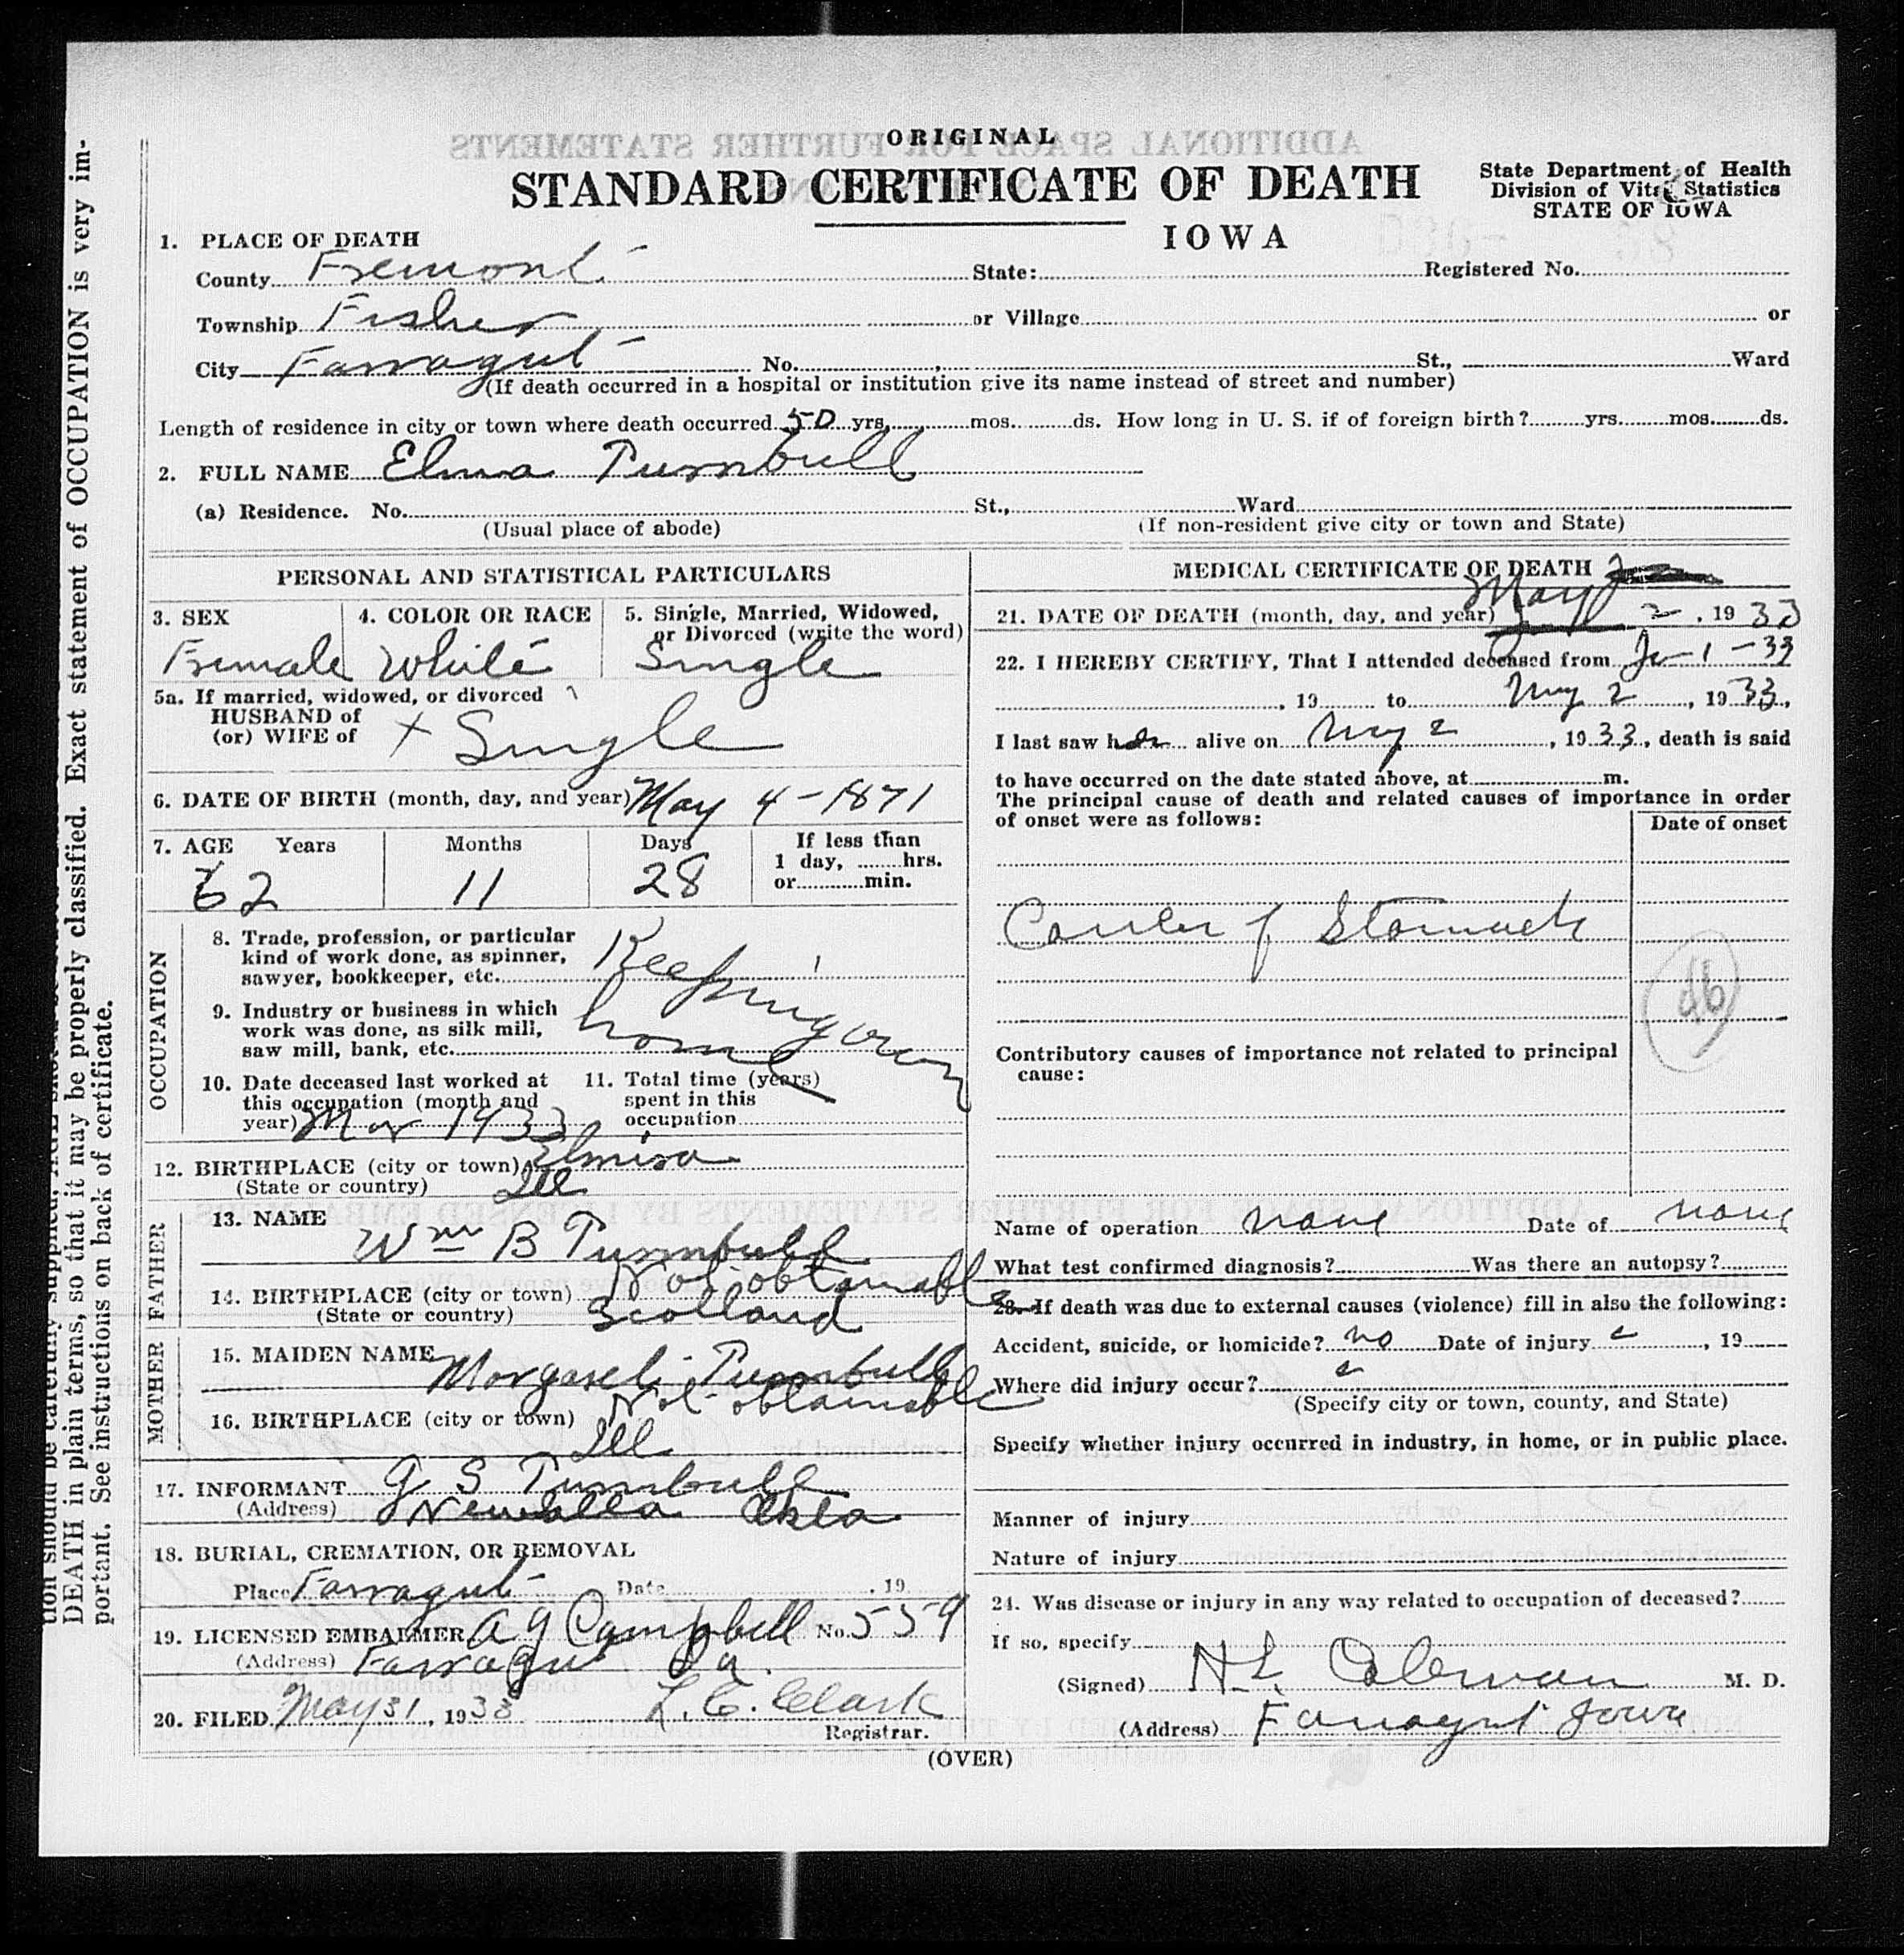 ORIGINAL
STANDARD CERTIFICATE OF DEATH
IOWA
State Department of Health
Division of Vital Statistics
STATE OF IOWA
1. PLACE OF DEATH
County Fremont State: Registered No.
Township Fisher or Village or
City Farragut No. St., Ward
(If death occurred in a hospital or institution give its name instead of street and number)
Length of residence in city or town where death occurred 50 yrs. mos. ds. How long in U. S. if of foreign birth? yrs. mos. ds.
2. FULL NAME Elma Turnbull
(a) Residence. No. St., Ward
(Usual place of abode) (If non-resident give city or town and State)
PERSONAL AND STATISTICAL PARTICULARS
3. SEX 4. COLOR OR RACE 5. Single, Married, Widowed,
or Divorced (write the word)
Female White Single
5a. If married, widowed, or divorced
HUSBAND of
(or) WIFE of x Single
6. DATE OF BIRTH (month, day, and year) May 4-1871
7. AGE Years Months Days If less than
1 day, hrs.
or min.
62 11 28
OCCUPATION
8. Trade, profession, or particular
kind of work done, as spinner,
sawyer, bookkeeper, etc. Keeping own
9. Industry or business in which
work was done, as silk mill,
saw mill, bank, etc. home
10. Date deceased last worked at
this occupation (month and
year) Mar 1933
11. Total time (years)
spent in this
occupation
12. BIRTHPLACE (city or town) Elmira
(State or country) Ill
FATHER
13. NAME Wm B Turnbull
14. BIRTHPLACE (city or town) Not obtainable
(State or country) Scotland
MOTHER
15. MAIDEN NAME Margaret Turnbull
16. BIRTHPLACE (city or town) Not obtainable
Ill
17. INFORMANT G S Turnbull
(Address) Newalla Okla
18. BURIAL, CREMATION, OR REMOVAL
Place Farragut Date , 19
19. LICENSED EMBALMER A G Campbell No. 559
(Address) Farragut Ia.
20. FILED May 31, 1933 L. E. Clark
Registrar.
MEDICAL CERTIFICATE OF DEATH
21. DATE OF DEATH (month, day, and year) May 2, 1933
22. I HEREBY CERTIFY, That I attended deceased from 1-33
, 19 to May 2, 1933,
I last saw her alive on May 2, 1933, death is said
to have occurred on the date stated above, at m.
The principal cause of death and related causes of importance in order
of onset were as follows:
Date of onset
Cancer of Stomach
46
Contributory causes of importance not related to principal
cause:
Name of operation none Date of none
What test confirmed diagnosis? Was there an autopsy?
23. If death was due to external causes (violence) fill in also the following:
Accident, suicide, or homicide? no Date of injury , 19
Where did injury occur?
(Specify city or town, county, and State)
Specify whether injury occurred in industry, in home, or in public place.
Manner of injury
Nature of injury
24. Was disease or injury in any way related to occupation of deceased?
If so, specify
(Signed) M. D.
(Address) Farragut Iowa
(OVER)
DEATH in plain terms, so that it may be properly classified. Exact statement of OCCUPATION is very im-
portant. See instructions on back of certificate.